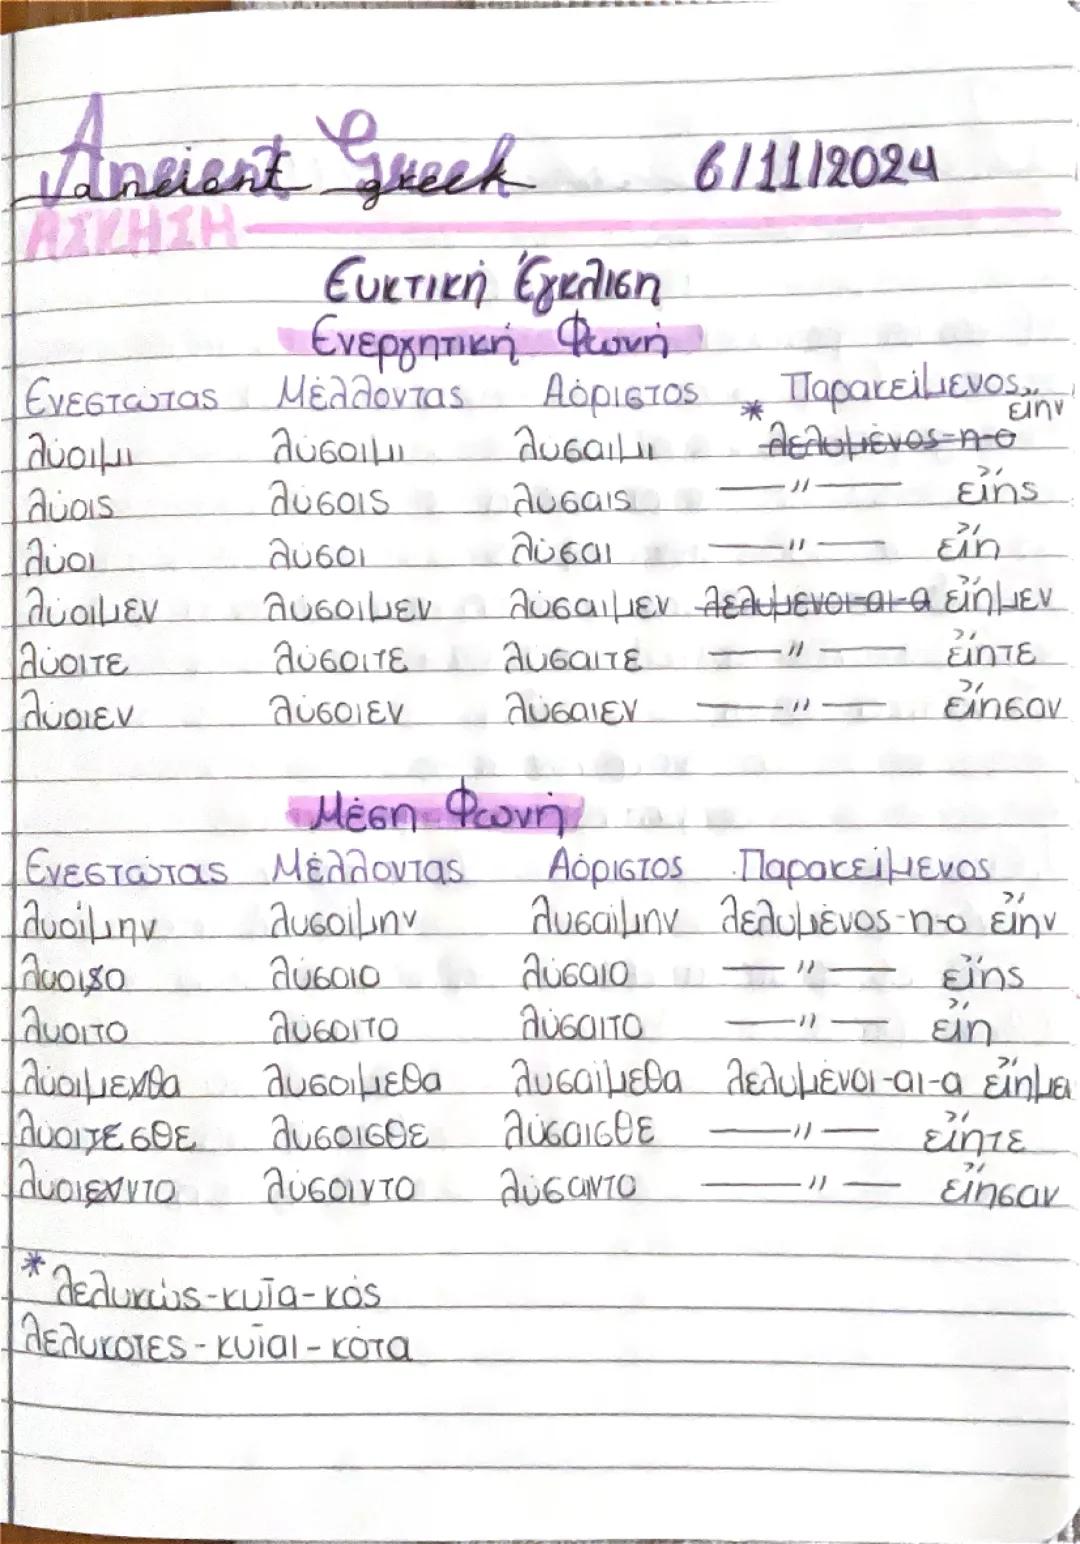 Ancient Greek 6/11/2024
ancient greek
ΑΣΚΗΣΗ
Ευκτική Έγκλιση
Ενεργητική Φωνή
Ενεστώτας Μέλλοντας Αόριστος Παρακείμενος
λύοιμι λύσοιμι λύσαιμι * λελυμένος-η-ο εἴην
λύοις λύσοις λύσαις —〃— εἴης
λύοι λύσοι λύσαι —〃— εἴη
λύοιμεν λύσοιμεν λύσαιμεν λελυμένοι-αι-α εἴημεν
λύοιτε λύσοιτε λύσαιτε —〃— εἴητε
λύοιεν λύσοιεν λύσαιεν —〃— εἴησαν
Μέση Φωνή
Ενεστώτας Μέλλοντας Αόριστος Παρακείμενος
λυοίμην λυσοίμην λυσαίμην λελυμένος-η-ο εἴην
λύοιο λύσοιο λύσαιο —〃— εἴης
λύοιτο λύσοιτο λύσαιτο —〃— εἴη
λυοιμεθα λυσοιμεθα λυσαίμεθα λελυμένοι-αι-α εἴημεν
λύοισθε λύσοισθε λύσαισθε —〃— εἴητε
λύοιντο λύσοιντο λύσαιντο —〃— εἴησαν
* λελυκώς-κυῖα-κός
λελυκοτες-κυῖαι-κότα